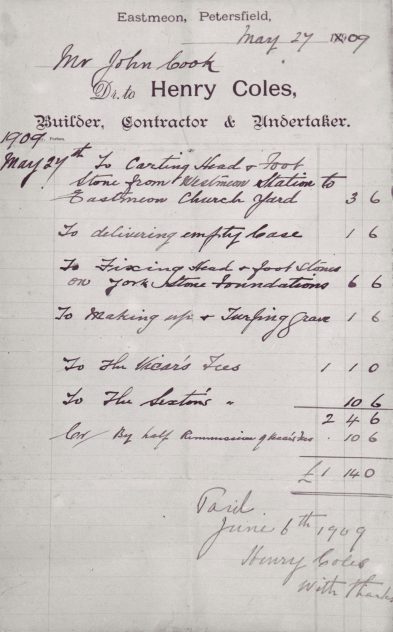 Eastmeon, Petersfield,
May 27 1909
Mr John Cook
Dr. to Henry Coles,
Builder, Contractor & Undertaker.
1909
May 27th To Carting Head & Foot
Stone from Westmeon Station to
Eastmeon Church Yard 3 6
To delivering empty Case 1 6
To Fixing Head & foot Stones
on York Stone Foundations 6 6
To Making up & Turfing Grave 1 6
To The Vicar's Fees 1 1 0
To The Sexton's " 10 6
2 4 6
Cr By half Remmission of Vicar's Fees 10 6
£1 14 0
Paid
June 6th 1909
Henry Coles
With thanks